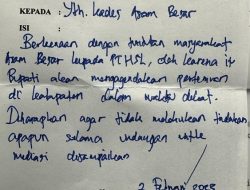 KEPADA : Yth. Kades Asam Besar
ISI :
Berkenaan dengan tuntutan masyarakat
Asam Besar kepada PT HSL, oleh karena it
Bupati akan mengagendakan pertemuan
di kabupaten dalam waktu dekat.
Diharapkan agar tidak melakukan tindakan
apapun selama undangan untuk
mediasi disampaikan
2 Februari